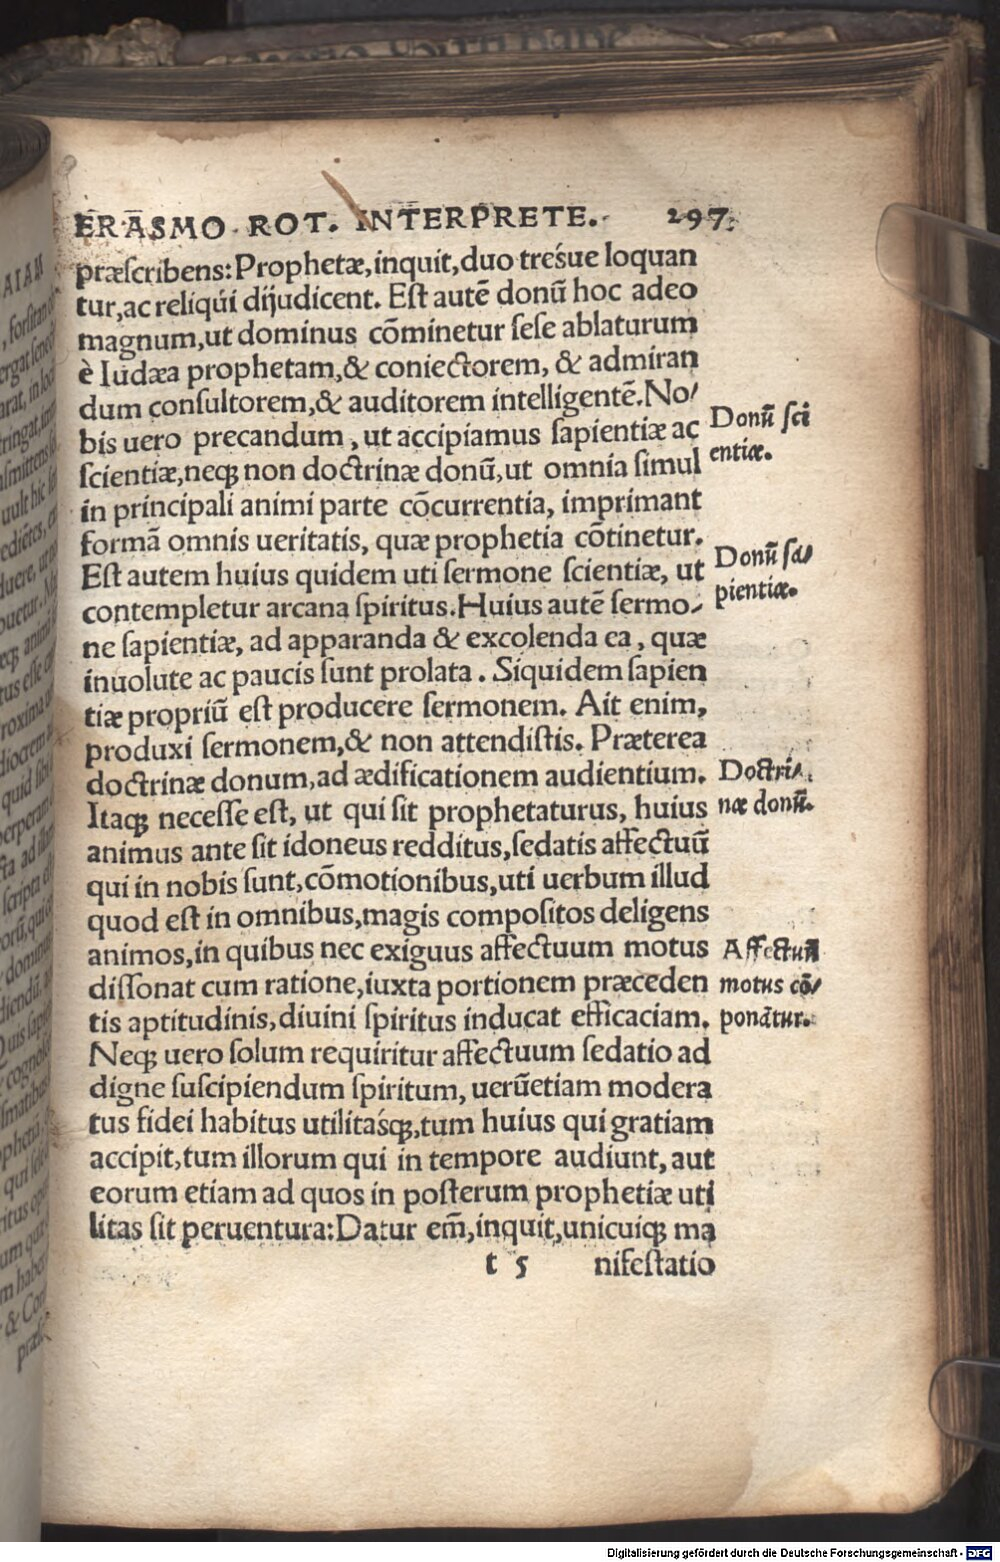 ERASMO ROT. INTERPRETE. 297
præſcribens: Prophetæ, inquit, duo tresúe loquan
tur, ac reliqúi dijudicent. Eſt autē donū hoc adeo
magnum, ut dominus cōminetur ſeſe ablaturum
è Iudæa prophetam, & coniectorem, & admiran
dum conſultorem, & auditorem intelligentē. No/
bis uero precandum, ut accipiamus ſapientiæ ac
Donū ſci
ſcientiæ, neqꝫ non doctrinæ donū, ut omnia ſimul
entiæ.
in principali animi parte cōcurrentia, imprimant
formā omnis ueritatis, quæ prophetia cōtinetur.
Donū ſa/
Eſt autem huius quidem uti ſermone ſcientiæ, ut
pientiæ.
contempletur arcana ſpiritus. Huius autē ſermo/
ne ſapientiæ, ad apparanda & excolenda ea, quæ
inuolute ac paucis ſunt prolata. Siquidem ſapien
tiæ propriū eſt producere ſermonem. Ait enim,
produxi ſermonem, & non attendiſtis. Præterea
doctrinæ donum, ad ædificationem audientium.
Doctri/
Itaqꝫ neceſſe eſt, ut qui ſit prophetaturus, huius
næ donū.
animus ante ſit idoneus redditus, ſedatis affectuū
qui in nobis ſunt, cōmotionibus, uti uerbum illud
quod eſt in omnibus, magis compoſitos deligens
animos, in quibus nec exiguus affectuum motus
Affectuū
diſſonat cum ratione, iuxta portionem præceden
motus cō/
tis aptitudinis, diuini ſpiritus inducat efficaciam.
ponātur.
Neqꝫ uero ſolum requiritur affectuum ſedatio ad
digne ſuſcipiendum ſpiritum, uerūetiam modera
tus fidei habitus utilitaśqꝫ, tum huius qui gratiam
accipit, tum illorum qui in tempore audiunt, aut
eorum etiam ad quos in poſterum prophetiæ uti
litas ſit peruentura: Datur em̄, inquit, unicuiqꝫ ma
t 5 nifeſtatio
Digitalisierung gefördert durch die Deutsche Forschungsgemeinschaft - DFG